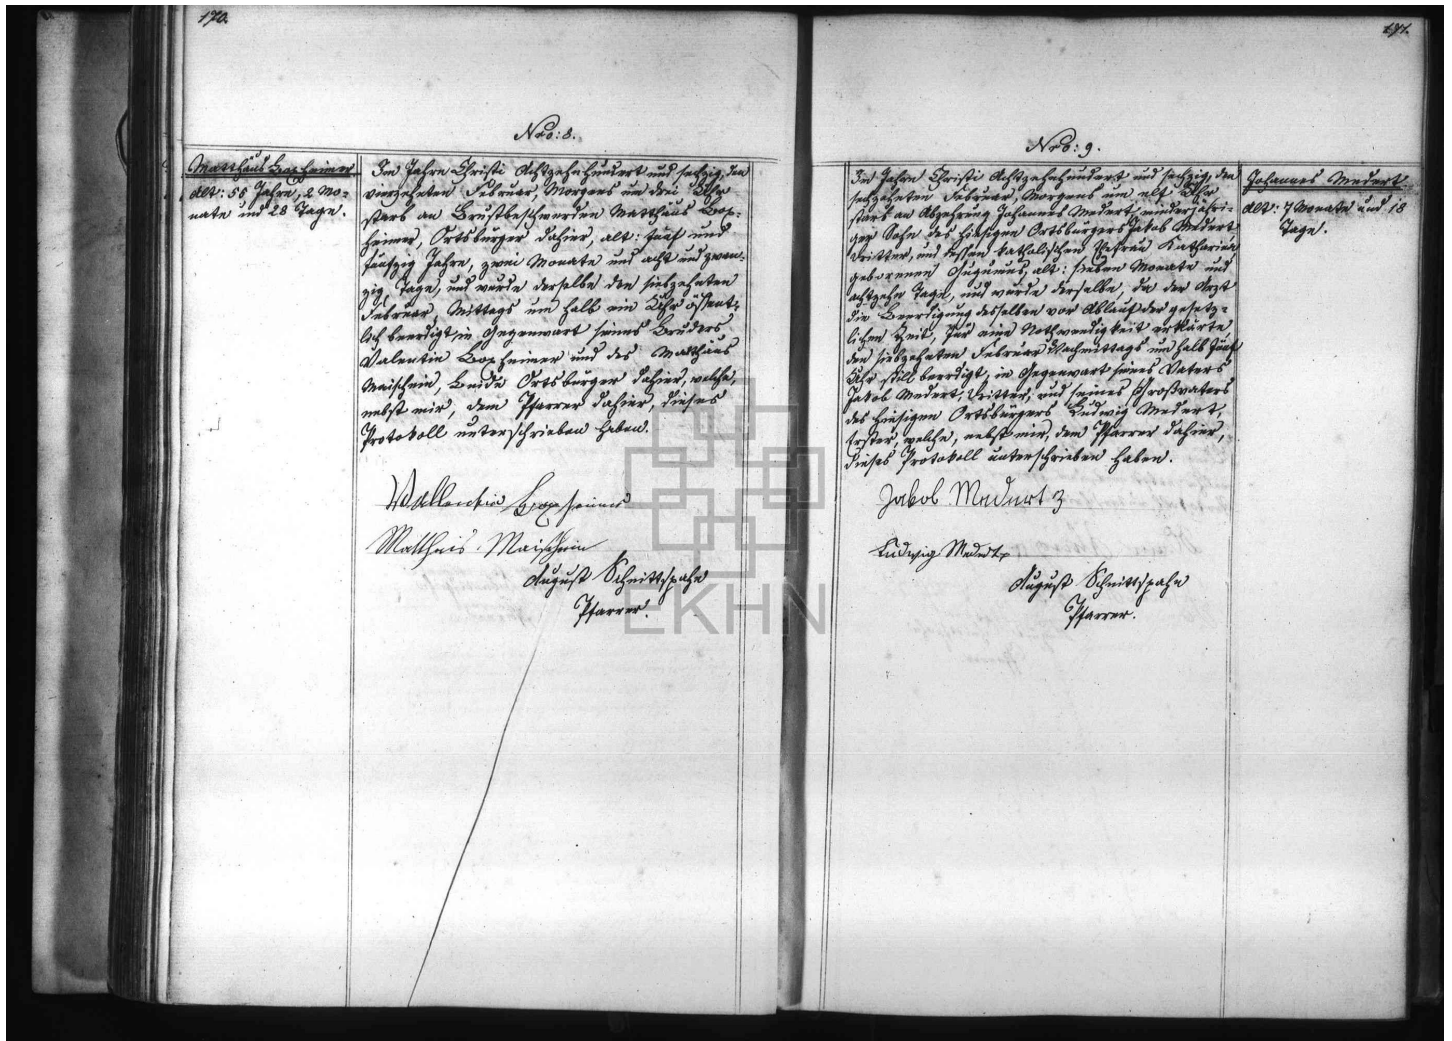 170.
Nro: 8.
Matthäus Boxheimer
alt: 55 Jahre, 2 Mo-
nate und 28 Tage.
Im Jahre Christi Achtzehnhundert und sechzig, den
vierzehnten Februar, Morgens um drei Uhr
starb an Brustbeschwerden Matthäus Box-
heimer, Ortsbürger dahier, alt: fünf und
fünfzig Jahre, zwei Monate und acht und zwan-
zig Tage, und wurde derselbe den siebzehnten
Februar, Mittags um halb ein Uhr öffent-
lich beerdigt, in Gegenwart seines Bruders
Valentin Boxheimer und des Matthäus
Maischein, beide Ortsbürger dahier, welche,
nebst mir, dem Pfarrer dahier, dieses
Protokoll unterschrieben haben.
Vallentin Boxheimer
Mattheis Maischein
August Schnittspahn
Pfarrer.
171.
Nro: 9.
Im Jahre Christi Achtzehnhundert und sechzig, den
sechzehnten Februar, Morgens um elf Uhr
starb an Abzehrung Johannes Medert, minderjähri-
ger Sohn des hiesigen Ortsbürgers Jakob Medert
Dritter, und dessen katholischen Ehefrau Katharina
geborenen, alt: sieben Monate und
achtzehn Tage, und wurde derselbe, da der Arzt
die Beerdigung desselben vor Ablauf der gesetz-
lichen Zeit, für eine Nothwendigkeit erklärte,
den siebzehnten Februar Nachmittags um halb fünf
Uhr still beerdigt, in Gegenwart seines Vaters
Jakob Medert, Dritter, und seines Großvaters
des hiesigen Ortsbürgers Ludwig Medert,
Erster, welche, nebst mir, dem Pfarrer dahier,
dieses Protokoll unterschrieben haben.
Johannes Medert
alt: 7 Monate und 18
Tage.
Jakob Medert 3
Ludwig Medert
August Schnittspahn
Pfarrer.
EKHN